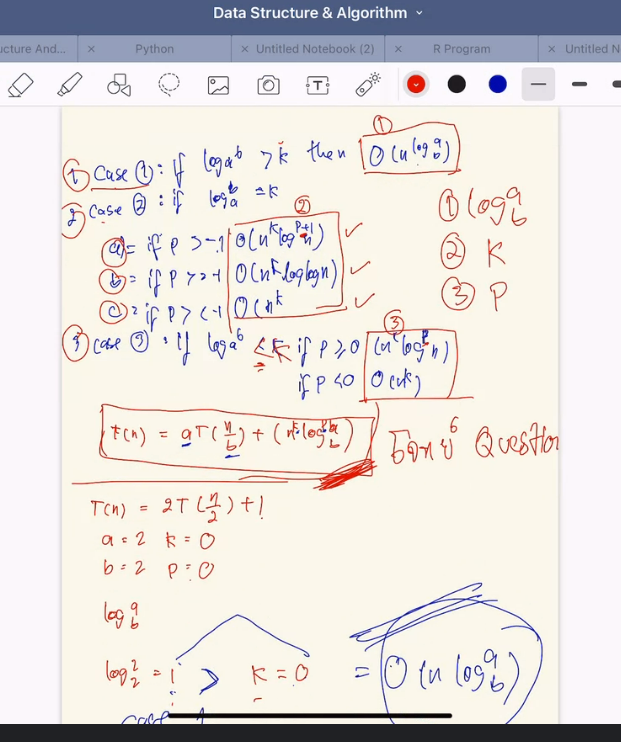 Data Structure & Algorithm
ucture And...
Python
Untitled Notebook (2)
R Program
Untitled N
T
①
① Case ①: if log a^b > k then O(n^log_b^a)
2 Case ②: if log_a^b = k
②
a = if P > -1 O(n^k log^{P+1} n)
b = if P > = -1 O(n^k log log n)
c = if P > < -1 O(n^k
③
3 case ③: if log a^b < k if P ≥ 0 (n^k log^P n)
if P < 0 O(n^k)
① log_b^a
② K
③ P
T(n) = aT(n/b) + (n^k log_b^a)
Question
T(n) = 2T(n/2) + 1
a = 2 k = 0
b = 2 P = 0
log_b^a
log_2^2 = 1 > k = 0 = O(n log_b^a)
case 1